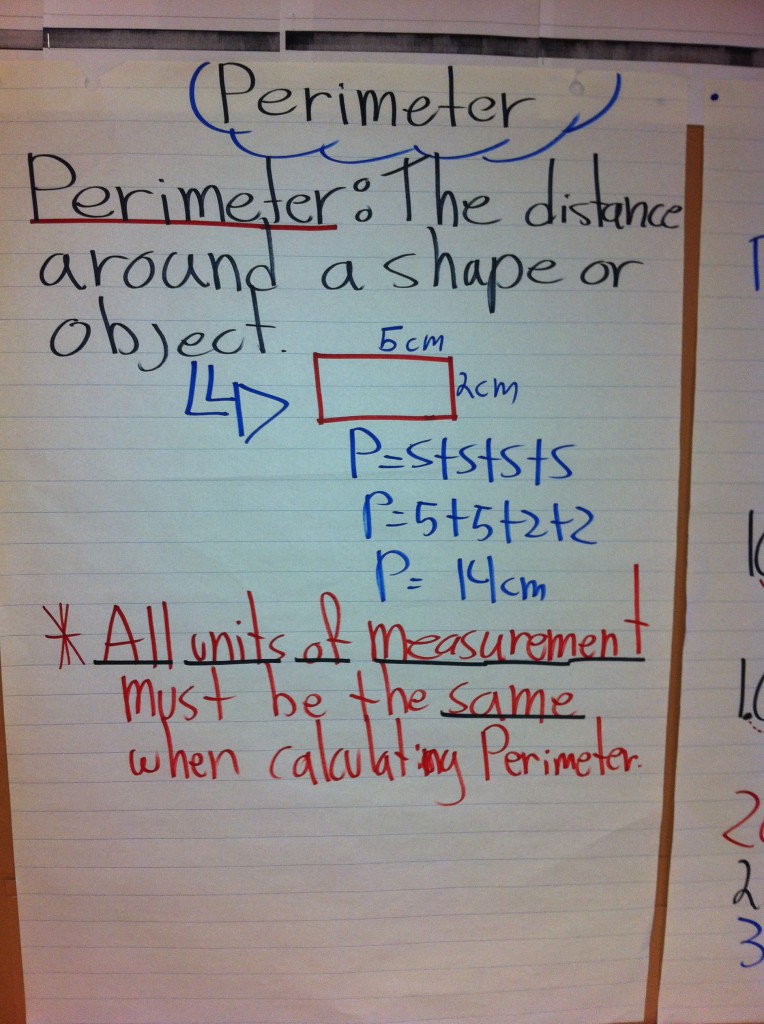 Perimeter
Perimeter: The distance
around a shape or
object.
5cm
2cm
P=S+S+S+S
P=5+5+2+2
P= 14cm
* All units of measurement
must be the same
when calculating Perimeter.
2
3